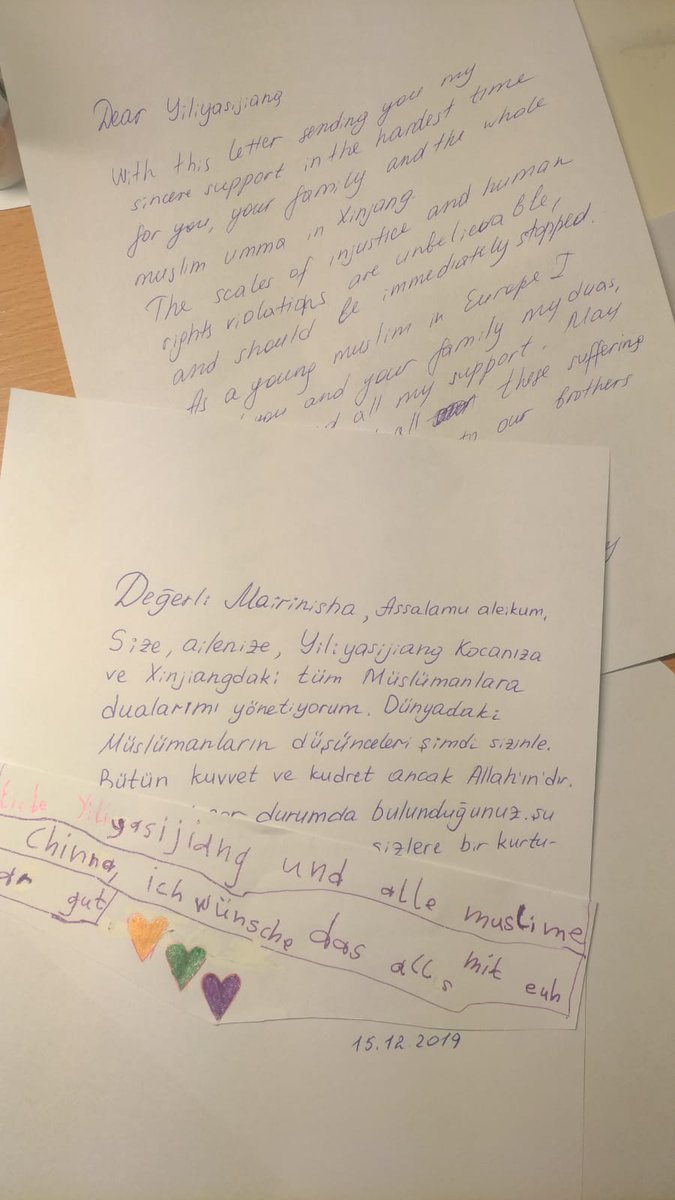 Dear Yiliyasijiang
With this letter sending you my
sincere support in the hardest time
for you, your family and the whole
muslim umma in Xinjang.
The scales of injustice and human
rights violations are unbelievable,
and should be immediately stopped.
As a young muslim in Europe I
you and your family my duas,
all my support. May
all these suffering
to our brothers
Değerli Mairinisha, Assalamu aleikum,
Size, ailenize, Yiliyasijiang Kocanıza
ve Xinjiangdaki tüm Müslümanlara
dualarımı yönetiyorum. Dünyadaki
Müslümanların düşünceleri şimdi sizinle.
Bütün kuvvet ve kudret ancak Allah'ın'dır.
durumda bulunduğunuz şu
sizlere bir kurtu-
Yiliyasijiang und alle muslime
Chinna, ich wünsche das alls mit euh
gut
15.12.2019